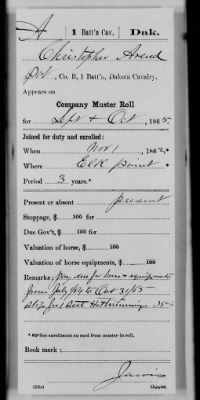 A 1 Batt'n Cav. Dak.
Christopher Arend
Pvt, Co. B, 1 Batt'n, Dakota Cavalry.
Appears on
Company Muster Roll
for Sept & Oct, 1865
Joined for duty and enrolled:
When Nov 1, 1862.*
Where Elk Point
Period 3 years.*
Present or absent present
Stoppage, $ 100 for
Due Gov't, $ 100 for
Valuation of horse, $ 100
Valuation of horse equipments, $ 100
Remarks: Pay due for horse & equipments
from July 1/64 to Oct 31/65
Stop for 1
* See enrollment on card from muster-in roll.
Book mark:
Copyist.